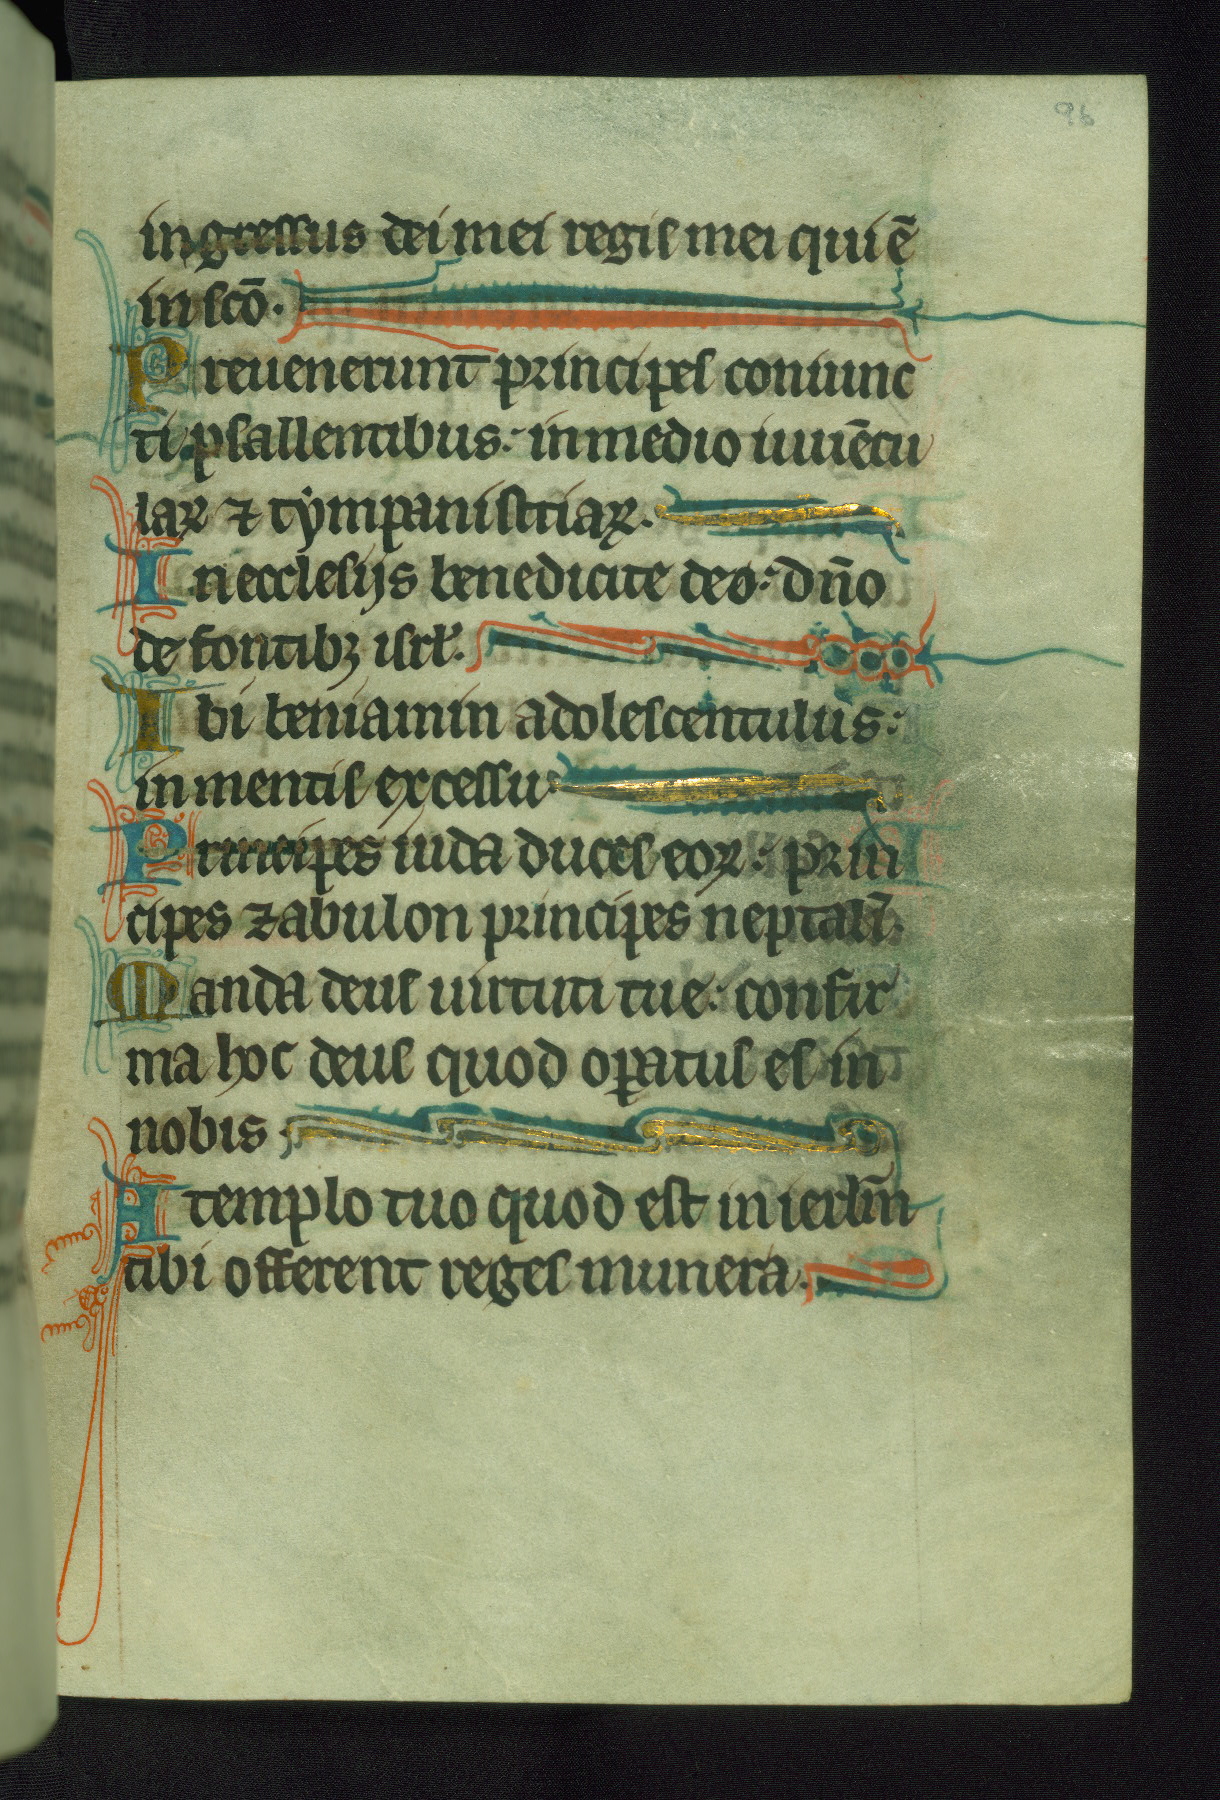 96
ingressus dei mei regis mei qui ē
in scō.
Preuenerunt principes coniunc
ti psallentibus: in medio iuuēcu
laꝝ ⁊ tẏmpanistriaꝝ.
In ecclesijs benedicite deo: dño
de fontibꝫ isrł.
Ibi beniamin adolescentulus:
in mentis excessu
Principes iuda duces eoꝝ: prin
cipes zabulon principes neptalī.
Manda deus uirtuti tue: confir
ma hoc deus quod oꝑatus es in
nobis
A templo tuo quod est in ierlm̄
tibi offerent reges munera.